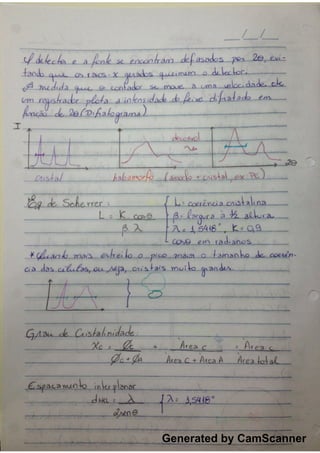 O detector e a fonte se encontram defasados por 2θ, evi-
tando que os raios-x gerados queimem o detector.
A medida que o contador se move a uma velocidade cte
um registrador plota a intensidade do feixe difratado em
função de 2θ (Difratograma)
I
2θ
cristal
(amorfo + cristal, ex PC)
Eq de Scherrer:
L: coerência cristalina
L = K cosθ
β λ
β = largura à ½ altura
λ = 1,5418°, K = 0,9
cosθ em radianos
* Quanto mais estreito o pico maior o tamanho de coerên-
cia das células, ou seja, cristais muito grandes.
Grau de Cristalinidade:
Xc = φc = Area c = Area c
φc + φA Area C + Area A Area total
Espaçamento interplanar
dHKL = λ { λ = 1,5418°
2senθ
Generated by CamScanner